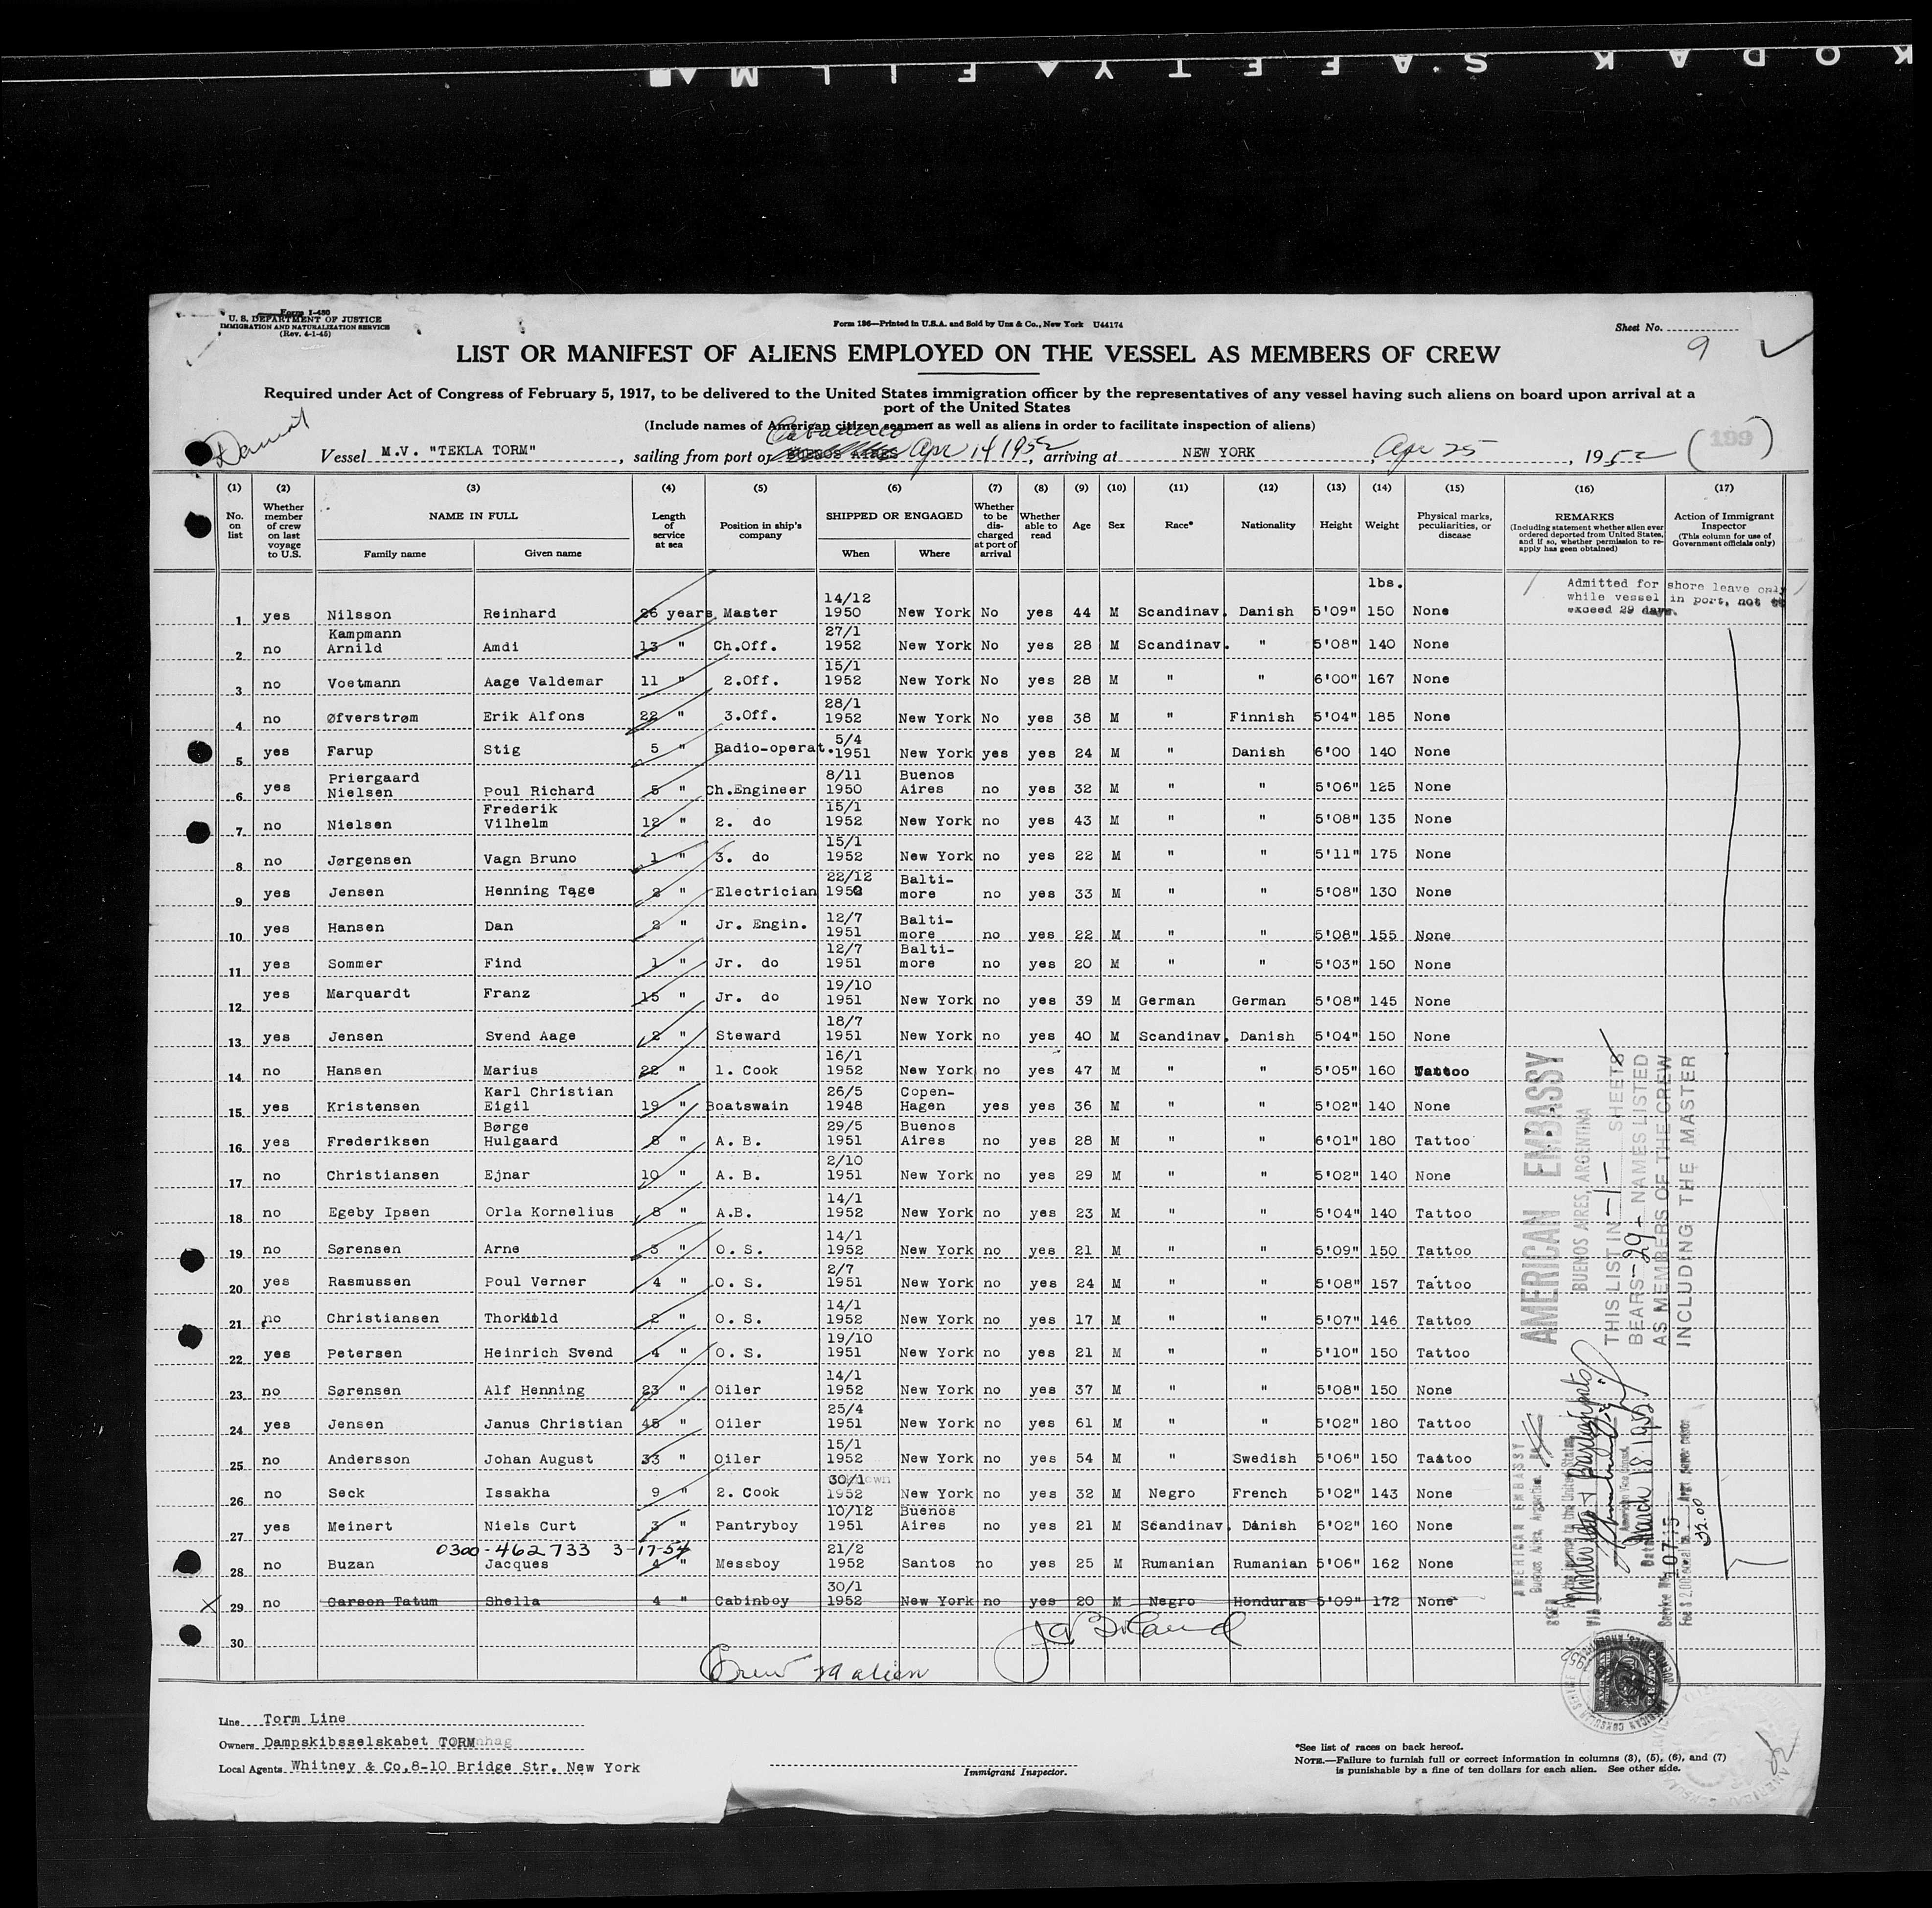 KODAK SAFETY FILM
Form I-480
U. S. DEPARTMENT OF JUSTICE
IMMIGRATION AND NATURALIZATION SERVICE
(Rev. 4-1-45)
Form 196—Printed in U.S.A. and Sold by Unz & Co., New York U44174
Sheet No.
9
LIST OR MANIFEST OF ALIENS EMPLOYED ON THE VESSEL AS MEMBERS OF CREW
Required under Act of Congress of February 5, 1917, to be delivered to the United States immigration officer by the representatives of any vessel having such aliens on board upon arrival at a
port of the United States
(Include names of American citizen seamen as well as aliens in order to facilitate inspection of aliens)
Vessel M.V. "TEKLA TORM", sailing from port of BUENOS AIRES Apr 14 1952, arriving at NEW YORK, Apr 25, 1952 (199)
(1) (2) (3) (4) (5) (6) (7) (8) (9) (10) (11) (12) (13) (14) (15) (16) (17)
No. on list
Whether member of crew on last voyage to U.S.
NAME IN FULL
Family name
Given name
Length of service at sea
Position in ship's company
SHIPPED OR ENGAGED
When
Where
Whether to be discharged at port of arrival
Whether able to read
Age
Sex
Race*
Nationality
Height
Weight
Physical marks, peculiarities, or disease
REMARKS
(Including statement whether alien ever ordered deported from United States, and if so, whether permission to reapply has geen obtained)
Action of Immigrant Inspector
(This column for use of Government officials only)
lbs.
Admitted for shore leave only
while vessel in port, not to
exceed 29 days.
1 yes Nilsson Reinhard 26 years Master 14/12 1950 New York No yes 44 M Scandinav. Danish 5'09" 150 None
2 no Kampmann Arnild Amdi 13 " Ch.Off. 27/1 1952 New York No yes 28 M Scandinav. " 5'08" 140 None
3 no Voetmann Aage Valdemar 11 " 2.Off. 15/1 1952 New York No yes 28 M " " 6'00" 167 None
4 no Øfverstrøm Erik Alfons 22 " 3.Off. 28/1 1952 New York No yes 38 M " Finnish 5'04" 185 None
5 yes Farup Stig 5 " Radio-operat. 5/4 1951 New York yes yes 24 M " Danish 6'00 140 None
6 yes Priergaard Nielsen Poul Richard 5 " Ch.Engineer 8/11 1950 Buenos Aires no yes 32 M " " 5'06" 125 None
7 no Nielsen Frederik Vilhelm 12 " 2. do 15/1 1952 New York no yes 43 M " " 5'08" 135 None
8 no Jørgensen Vagn Bruno 1 " 3. do 15/1 1952 New York no yes 22 M " " 5'11" 175 None
9 yes Jensen Henning Tage 2 " Electrician 22/12 1950 Balti-more no yes 33 M " " 5'08" 130 None
10 yes Hansen Dan 2 " Jr. Engin. 12/7 1951 Balti-more no yes 22 M " " 5'08" 155 None
11 yes Sommer Find 1 " Jr. do 12/7 1951 Balti-more no yes 20 M " " 5'03" 150 None
12 yes Marquardt Franz 15 " Jr. do 19/10 1951 New York no yes 39 M German German 5'08" 145 None
13 yes Jensen Svend Aage 2 " Steward 18/7 1951 New York no yes 40 M Scandinav. Danish 5'04" 150 None
14 no Hansen Marius 22 " 1. Cook 16/1 1952 New York no yes 47 M " " 5'05" 160 Tattoo
15 yes Kristensen Karl Christian Eigil 19 " Boatswain 26/5 1948 Copen-Hagen yes yes 36 M " " 5'02" 140 None
16 yes Frederiksen Børge Hulgaard 8 " A. B. 29/5 1951 Buenos Aires no yes 28 M " " 6'01" 180 Tattoo
17 no Christiansen Ejnar 10 " A. B. 2/10 1951 New York no yes 29 M " " 5'02" 140 None
18 no Egeby Ipsen Orla Kornelius 8 " A.B. 14/1 1952 New York no yes 23 M " " 5'04" 140 Tattoo
19 no Sørensen Arne 3 " O. S. 14/1 1952 New York no yes 21 M " " 5'09" 150 Tattoo
20 yes Rasmussen Poul Verner 4 " O. S. 2/7 1951 New York no yes 24 M " " 5'08" 157 Tattoo
21 no Christiansen Thorkild 2 " O. S. 14/1 1952 New York no yes 17 M " " 5'07" 146 Tattoo
22 yes Petersen Heinrich Svend 4 " O. S. 19/10 1951 New York no yes 21 M " " 5'10" 150 Tattoo
23 no Sørensen Alf Henning 23 " Oiler 14/1 1952 New York no yes 37 M " " 5'08" 150 None
24 yes Jensen Janus Christian 45 " Oiler 25/4 1951 New York no yes 61 M " " 5'02" 180 Tattoo
25 no Andersson Johan August 33 " Oiler 15/1 1952 New York no yes 54 M " Swedish 5'06" 150 Tattoo
26 no Seck Issakha 9 " 2. Cook 30/1 1952 New York no yes 32 M Negro French 5'02" 143 None
27 yes Meinert Niels Curt 3 " Pantryboy 10/12 1951 Buenos Aires no yes 21 M Scandinav. Danish 5'02" 160 None
0300-462733 3-17-54
28 no Buzan Jacques 4 " Messboy 21/2 1952 Santos no yes 25 M Rumanian Rumanian 5'06" 162 None
29 no Carson Tatum Shella 4 " Cabinboy 30/1 1952 New York no yes 20 M Negro Honduras 5'09" 172 None
30
Crew 29 alien
AMERICAN EMBASSY
BUENOS AIRES, ARGENTINA
THIS LIST IN -1- SHEETS
BEARS -29- NAMES LISTED
AS MEMBERS OF THE CREW
INCLUDING THE MASTER
AMERICAN EMBASSY
Buenos Aires, Argentina
March 18 1952
Line Torm Line
Owners Dampskibsselskabet TORM
Local Agents Whitney & Co, 8-10 Bridge Str. New York
Immigrant Inspector.
*See list of races on back hereof.
NOTE.—Failure to furnish full or correct information in columns (3), (5), (6), and (7)
is punishable by a fine of ten dollars for each alien. See other side.